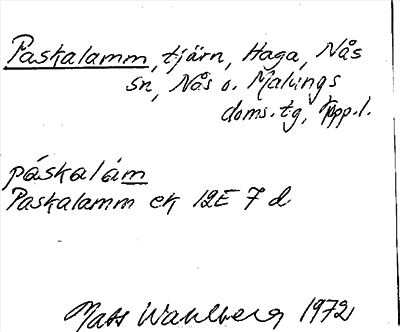 Paskalamm, tjärn, Haga, Nås
sn, Nås o. Malungs
doms.tg, Kppl.l.
páskalám
Paskalamm ek 12E 7 d
Mats Wahlberg 1972